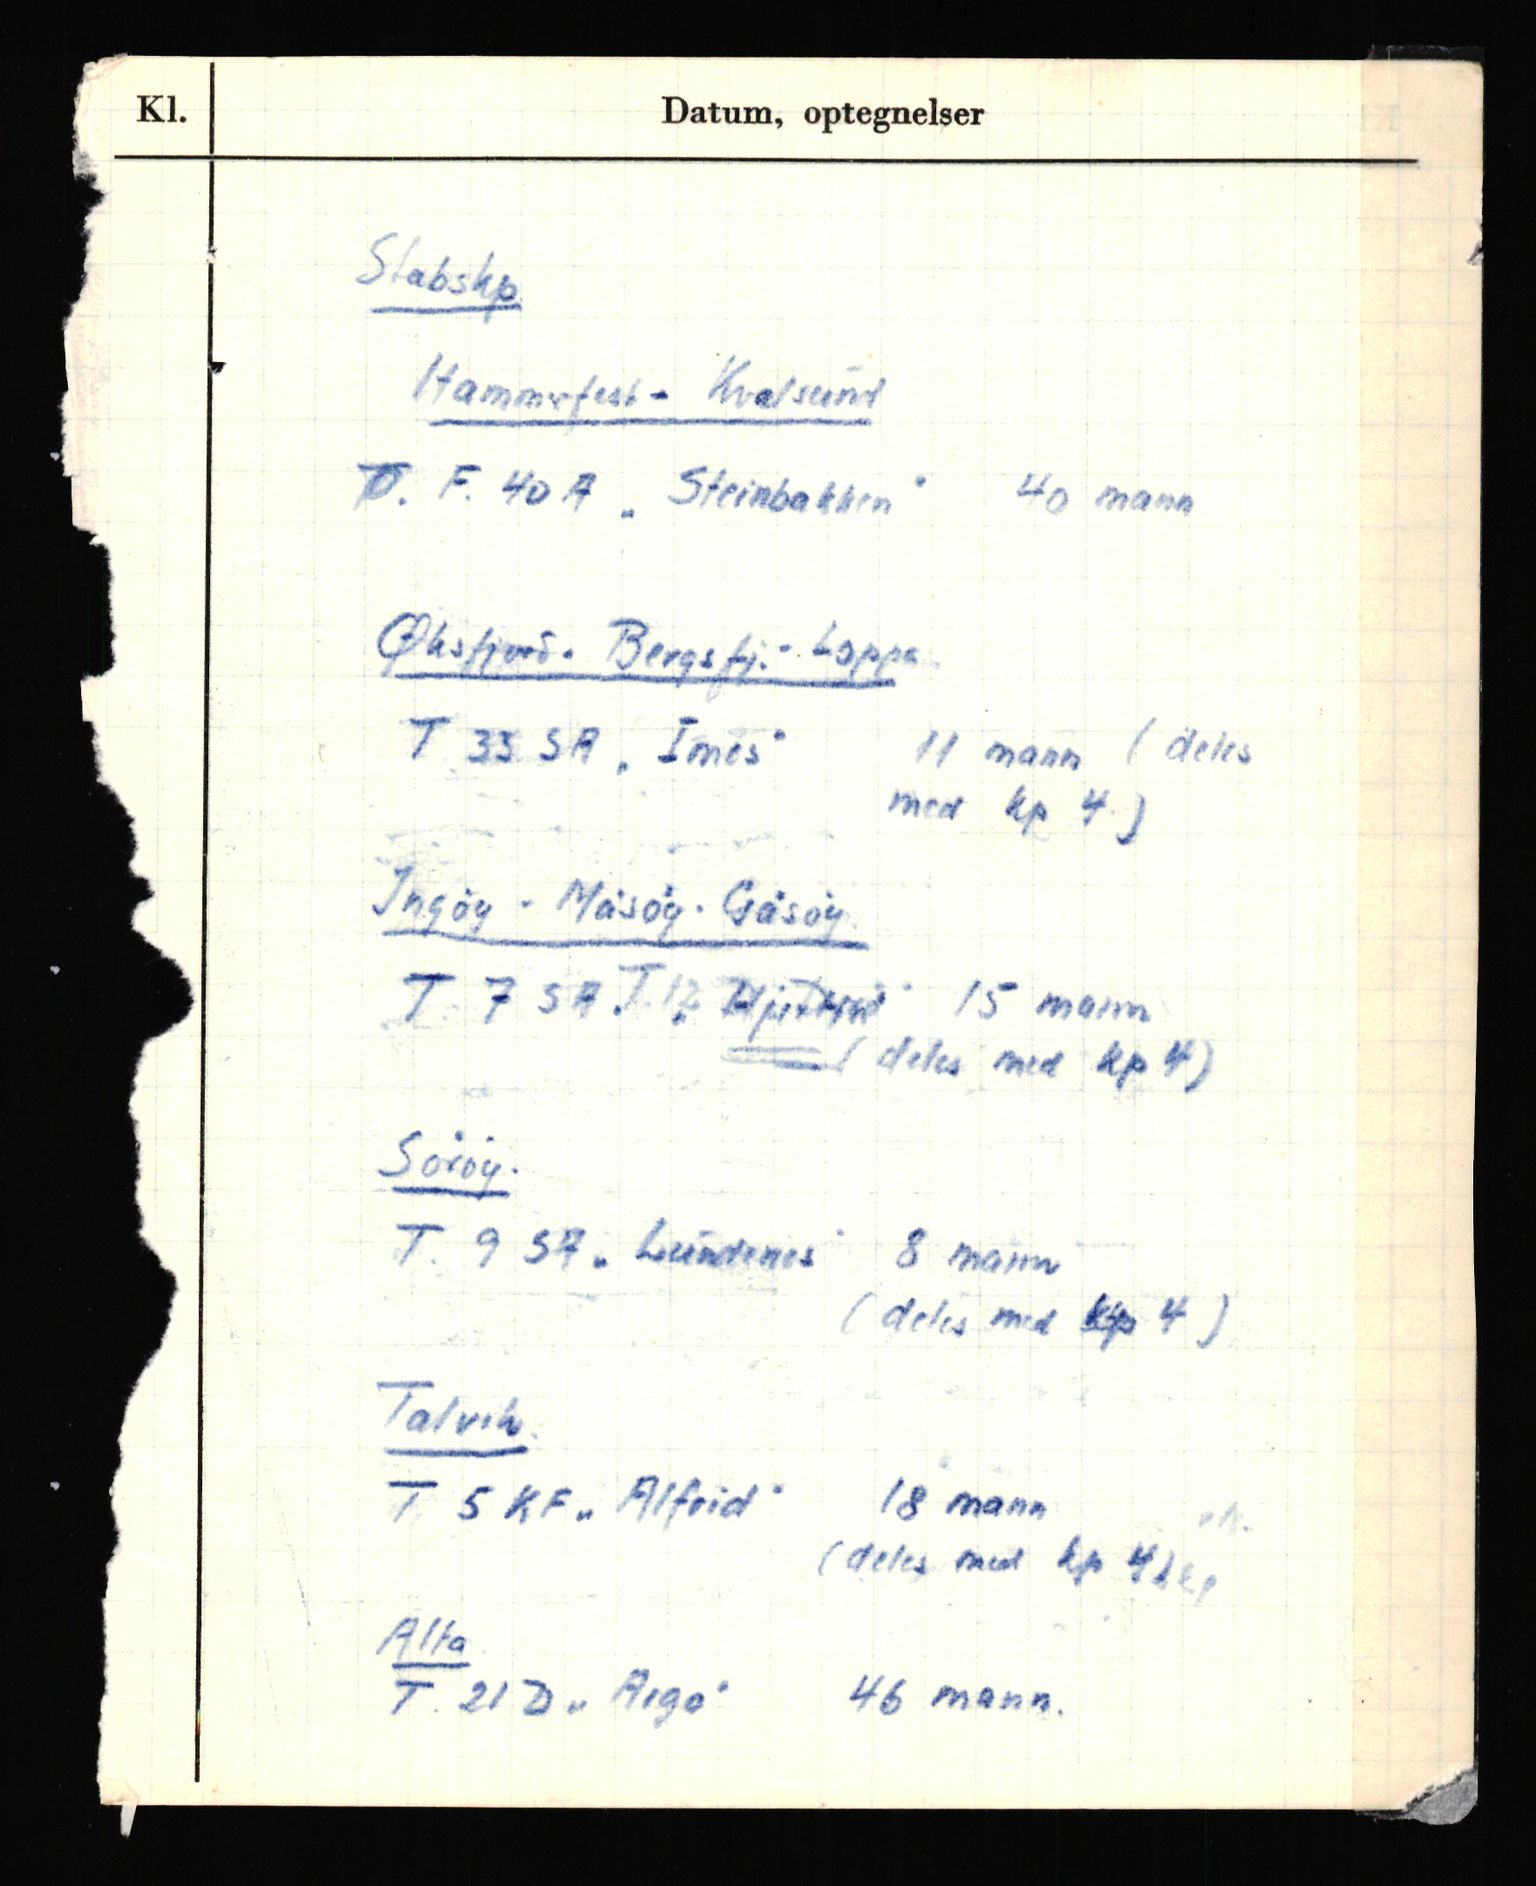 Kl.
Datum, optegnelser
Stabskp
Hammerfest - Kvalsund
F. 40 A „ Steinbakken" 40 mann
Øksfjord - Bergsfj. - Loppa
T 33 SA „ Imes" 11 mann ( deles
med kp 4 )
Ingöy - Måsöy - Gåsöy.
T. 7 SA. T. 12 15 mann
( deles med kp 4 )
Söröy.
T. 9 SA „ Lundenes" 8 mann
( deles med kp 4 )
Talvik.
T 5 KF „ Alfrid" 18 mann
(deles med kp 4
Alta
T. 21 D „ Argo" 46 mann.